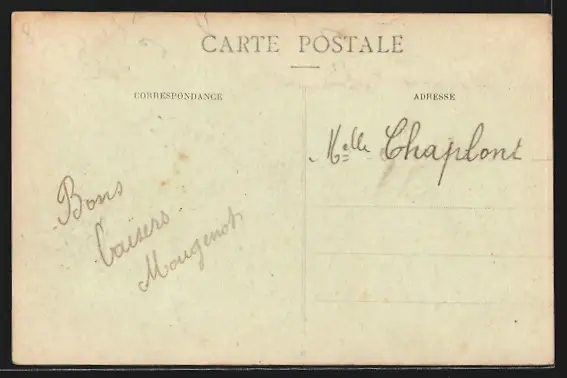 CARTE POSTALE
CORRESPONDANCE
ADRESSE
Melle Chaplont
Bons
baisers
Mougenot